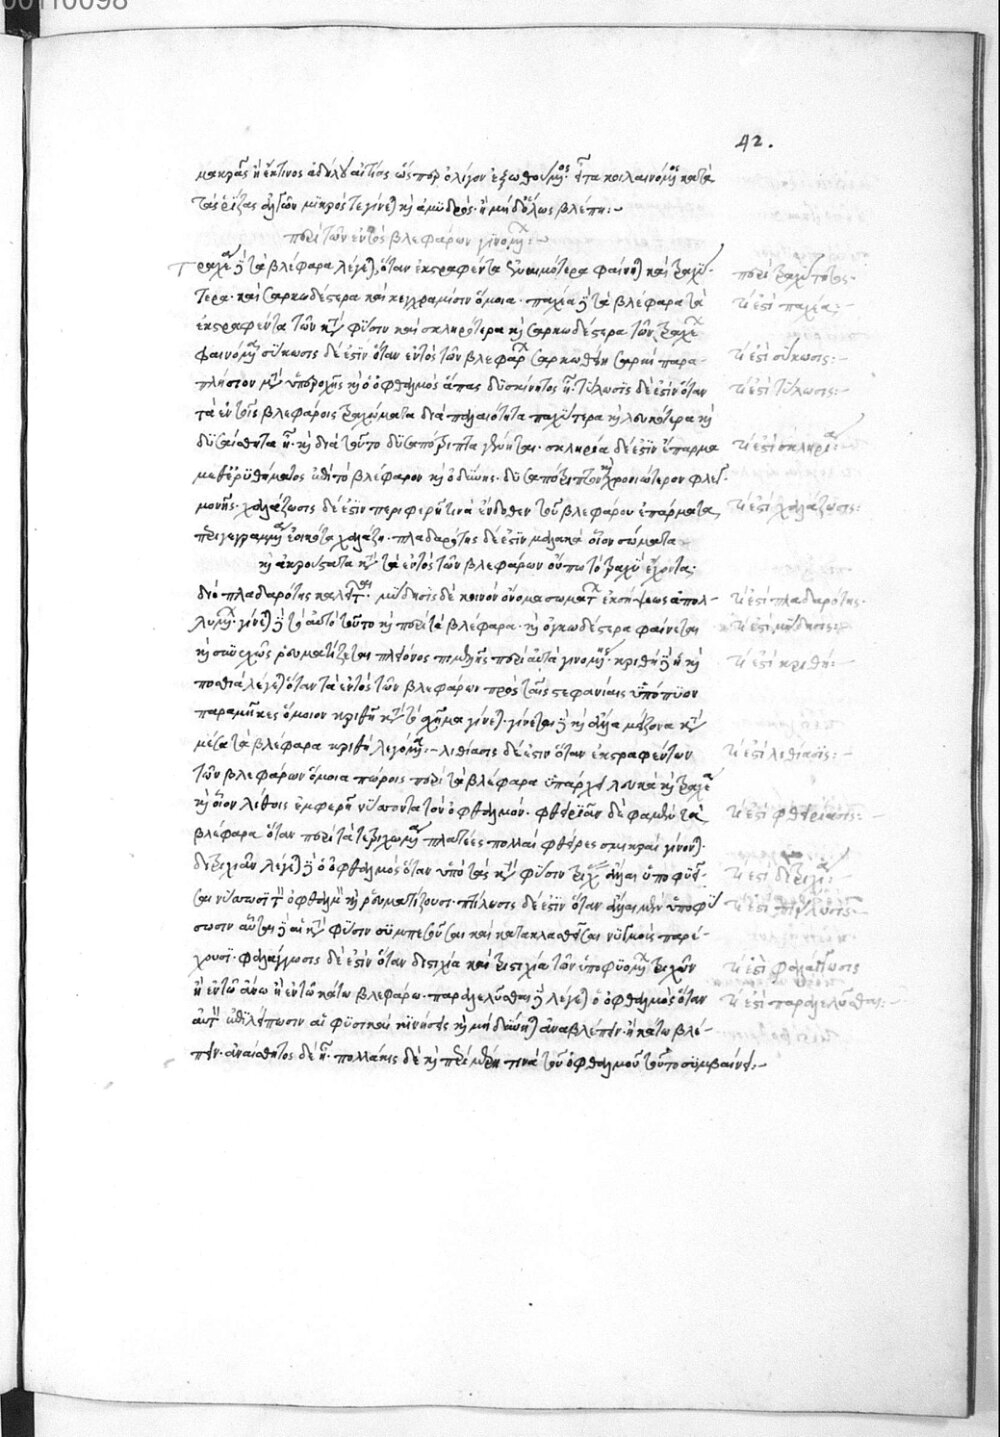 42.
μακρᾶς ἢ ἔκ τινος ἀδήλου αἰτίας ὥσπερ ὀλίγον ἐξωθούμενος. εἶτα κοιλαινόμενος κατὰ
τὰς ῥίζας αὐτῶν μικρός τε γίνεται καὶ ἀμυδρός. ἢ μηδ' ὅλως βλέπει:~
περὶ τῶν ἐντὸς βλεφάρων γινομένων:~
Τραχέα δὲ τὰ βλέφαρα λέγεται, ὅταν ἐκστραφέντα ἐναιμότερα φαίνηται καὶ τραχύ-
τερα. καὶ σαρκωδέστερα καὶ κεγχραμίσιν ὅμοια. παχέα δὲ τὰ βλέφαρα τὰ
ἐκστραφέντα τῶν κατὰ φύσιν καὶ σκληρότερα καὶ σαρκωδέστερα τῶν τραχέων
φαινόμενα σύκωσις δέ ἐστιν ὅταν ἐντὸς τῶν βλεφάρων σαρκωθῇ σαρκὶ παρα-
πλήσιον μετὰ ὑπεροχῆς καὶ ὁ ὀφθαλμὸς ἅπας δυσκίνητος ᾖ. τύλωσις δέ ἐστιν ὅταν
τὰ ἐν τοῖς βλεφάροις τραχώματα διὰ παλαιότητα παχύτερα καὶ λευκότερα καὶ
δυσαίσθητα ᾖ. καὶ διὰ τοῦτο δυσαπότριπτα γένηται. σκληρία δέ ἐστιν ἔπαρμα
μετ' ἐρυθήματος ἐπὶ τὸ βλέφαρον καὶ ὀδύνης. δυσαπότριπτον καὶ χρονιώτερον φλεγ-
μονῆς. χαλάζωσις δέ ἐστιν περιφερῆ τινα ἔνδοθεν τοῦ βλεφάρου ἐπάρματα,
περιγεγραμμένα ἐοικότα χαλάζῃ. πλαδαρότης δέ ἐστιν μαλακὰ οἷον σώματα
καὶ ἀκρούστατα κατὰ τὰ ἐντὸς τῶν βλεφάρων οὔπω τὸ τραχὺ ἔχοντα.
διὸ πλαδαρότης καλεῖται. μύδησις δὲ κοινὸν ὄνομα σωμάτων ἐκ σήψεως ἀπολ-
λυμένων. γίνεται δὲ τὸ αὐτὸ τοῦτο καὶ περὶ τὰ βλέφαρα. καὶ ὀγκωδέστερα φαίνεται
καὶ συνεχῶς ῥευματίζεται πλείονος πιμελῆς περὶ αὐτὰ γινομένης. κριθὴ δὲ ἢ καὶ
ποσθία λέγεται ὅταν τὰ ἐντὸς τῶν βλεφάρων πρὸς ταῖς στεφανίαις ὑπόπυον
παραμῆκες ὅμοιον κριθῇ κατὰ τὸ σχῆμα γίνεται. γίνεται δὲ καὶ ἄλλα μείζονα κατὰ
μέσα τὰ βλέφαρα κριθὴ λεγόμενα:~ λιθίασις δέ ἐστιν ὅταν ἐκστραφέντων
τῶν βλεφάρων ὅμοια πώροις περὶ τὰ βλέφαρα ὑπάρχει λευκὰ καὶ τραχέα
καὶ οἷον λίθοις ἐμφερῆ νύσσοντα τὸν ὀφθαλμόν. φθειριᾶν δέ φαμεν τὰ
βλέφαρα ὅταν περὶ τὰ τετριχωμένα πλατέες πολλαὶ φθεῖρες σμικραὶ γίνονται.
διστιχιᾶν λέγεται δὲ ὁ ὀφθαλμὸς ὅταν ὑπὸ τὰς κατὰ φύσιν τρίχας ἄλλαι ὑποφυεῖ-
σαι νύσσωσι τὸν ὀφθαλμὸν καὶ ῥευματίζουσι. πτίλωσις δέ ἐστιν ὅταν ἄλλαι μὲν ὑποφύ-
σωσιν αὗται δὲ αἱ κατὰ φύσιν συμπεσοῦσαι καὶ κατακλασθεῖσαι νυγμοὺς παρέ-
χουσι. φαλάγγωσις δέ ἐστιν ὅταν διστιχία καὶ τριστιχία τῶν ὑποφυομένων τριχῶν
ἢ ἐν τῷ ἄνω ἢ ἐν τῷ κάτω βλεφάρῳ. παραλελύσθαι δὲ λέγεται ὁ ὀφθαλμὸς ὅταν
αὐτὸν ἐπιλείπωσιν αἱ φυσικαὶ κινήσεις καὶ μὴ δύνηται ἀναβλέπειν. ἢ κάτω βλέ-
πειν. ἀναίσθητος δὲ ᾖ. πολλάκις δὲ καὶ περὶ μέρη τινὰ τοῦ ὀφθαλμοῦ τοῦτο συμβαίνει:~
περὶ τραχύτητος.
τί ἐστι παχέα:~
τί ἐστι σύκωσις:~
τί ἐστι τύλωσις:~
τί ἐστι σκληρία:
τί ἐστι χαλάζωσις:
τί ἐστι πλαδαρότης.
τί ἐστι μύδησις:
τί ἐστι κριθή:~
τί ἐστι λιθίασις:~
τί ἐστι φθειρίασις:~
τί ἐστι διστιχία:~
τί ἐστι πτίλωσις:~
τί ἐστι φαλάγγωσις
τί ἐστι παραλελύσθαι:~